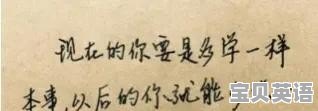 现在的你要是多学一样
本事,以后的你就能
宝贝英语